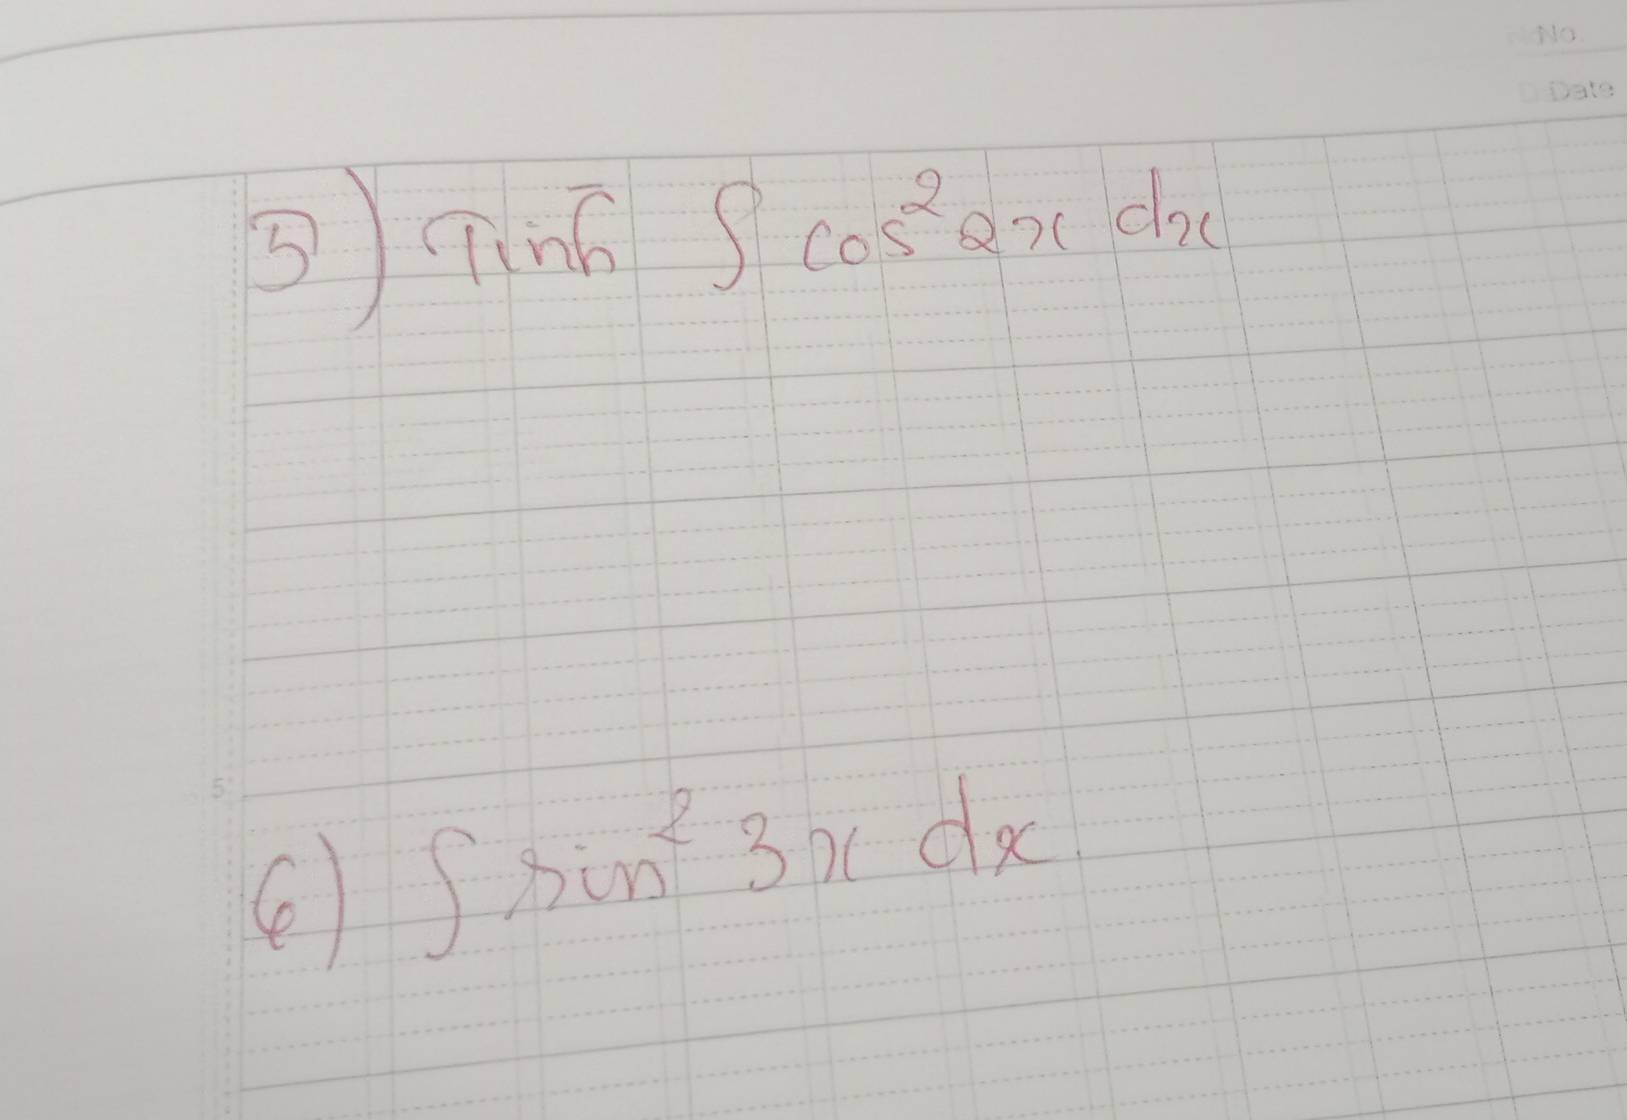 No
Date
5) Tính ∫ cos² 2x dx
5
6) ∫ sin² 3x dx